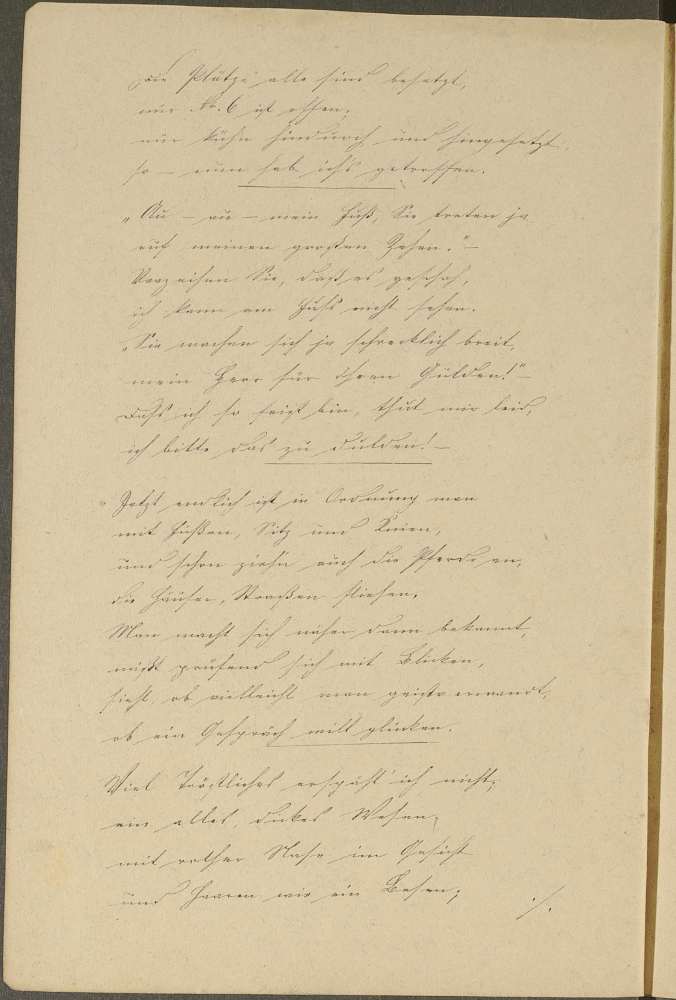 Die Plätze alle sind besetzt,
nur No. 6 ist offen;
nur kühn hindurch und hingesetzt,
so – nun hab ich's getroffen.
„Au – au – mein Fuß, Sie treten ja
auf meinen großen Zehen." –
Verzeihen Sie, daß es geschah,
ich kann am Fuß nicht sehen.
„Sie machen sich ja schrecklich breit,
mein Herr für Ihren Gulden!" –
Dass ich so feist bin, thut mir leid,
ich bitte das zu dulden! –
Jetzt endlich ist in Ordnung man
mit Füßen, Sitz und Knieen,
und schon ziehn auch die Pferde an,
die Häuser, Straßen fliehen.
Man macht sich näher dann bekannt,
mißt prüfend sich mit Blicken,
sieht, ob vielleicht man geistverwandt,
ob ein Gespräch will glücken.
Viel Tröstliches erspäht' ich nicht;
ein altes, dickes Wesen,
mit rother Nase im Gesicht
und Haaren wie ein Besen;
./.